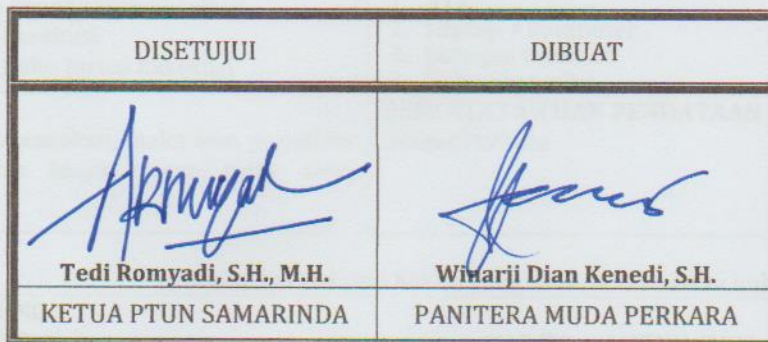 DISETUJUI DIBUAT
Tedi Romyadi, S.H., M.H. Winarji Dian Kenedi, S.H.
KETUA PTUN SAMARINDA PANITERA MUDA PERKARA